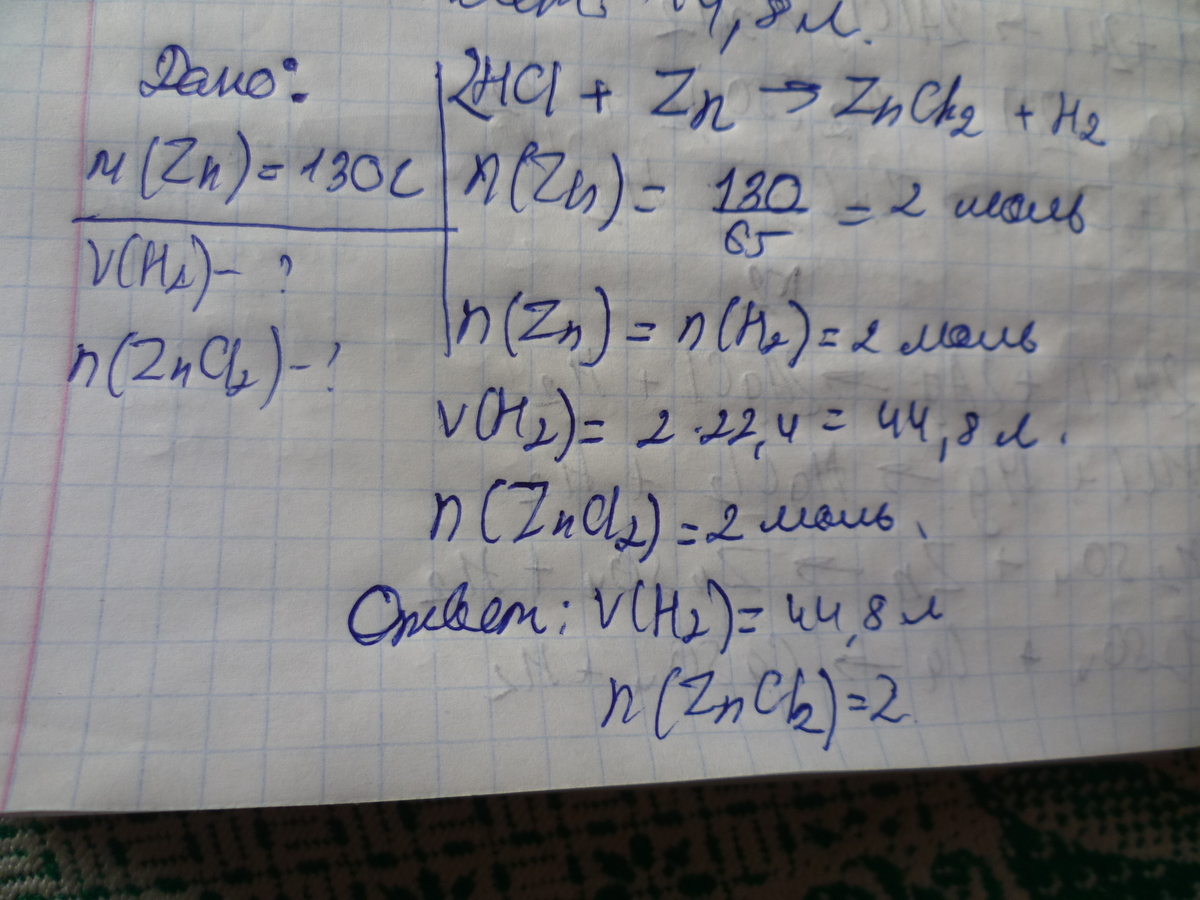 44,8 л.
Дано:
m(Zn) = 130г
V(H2) - ?
n(ZnCl2) - ?
2HCl + Zn → ZnCl2 + H2
n(Zn) = 130/65 = 2 моль
n(Zn) = n(H2) = 2 моль
V(H2) = 2·22,4 = 44,8 л.
n(ZnCl2) = 2 моль.
Ответ: V(H2) = 44,8 л
n(ZnCl2) = 2